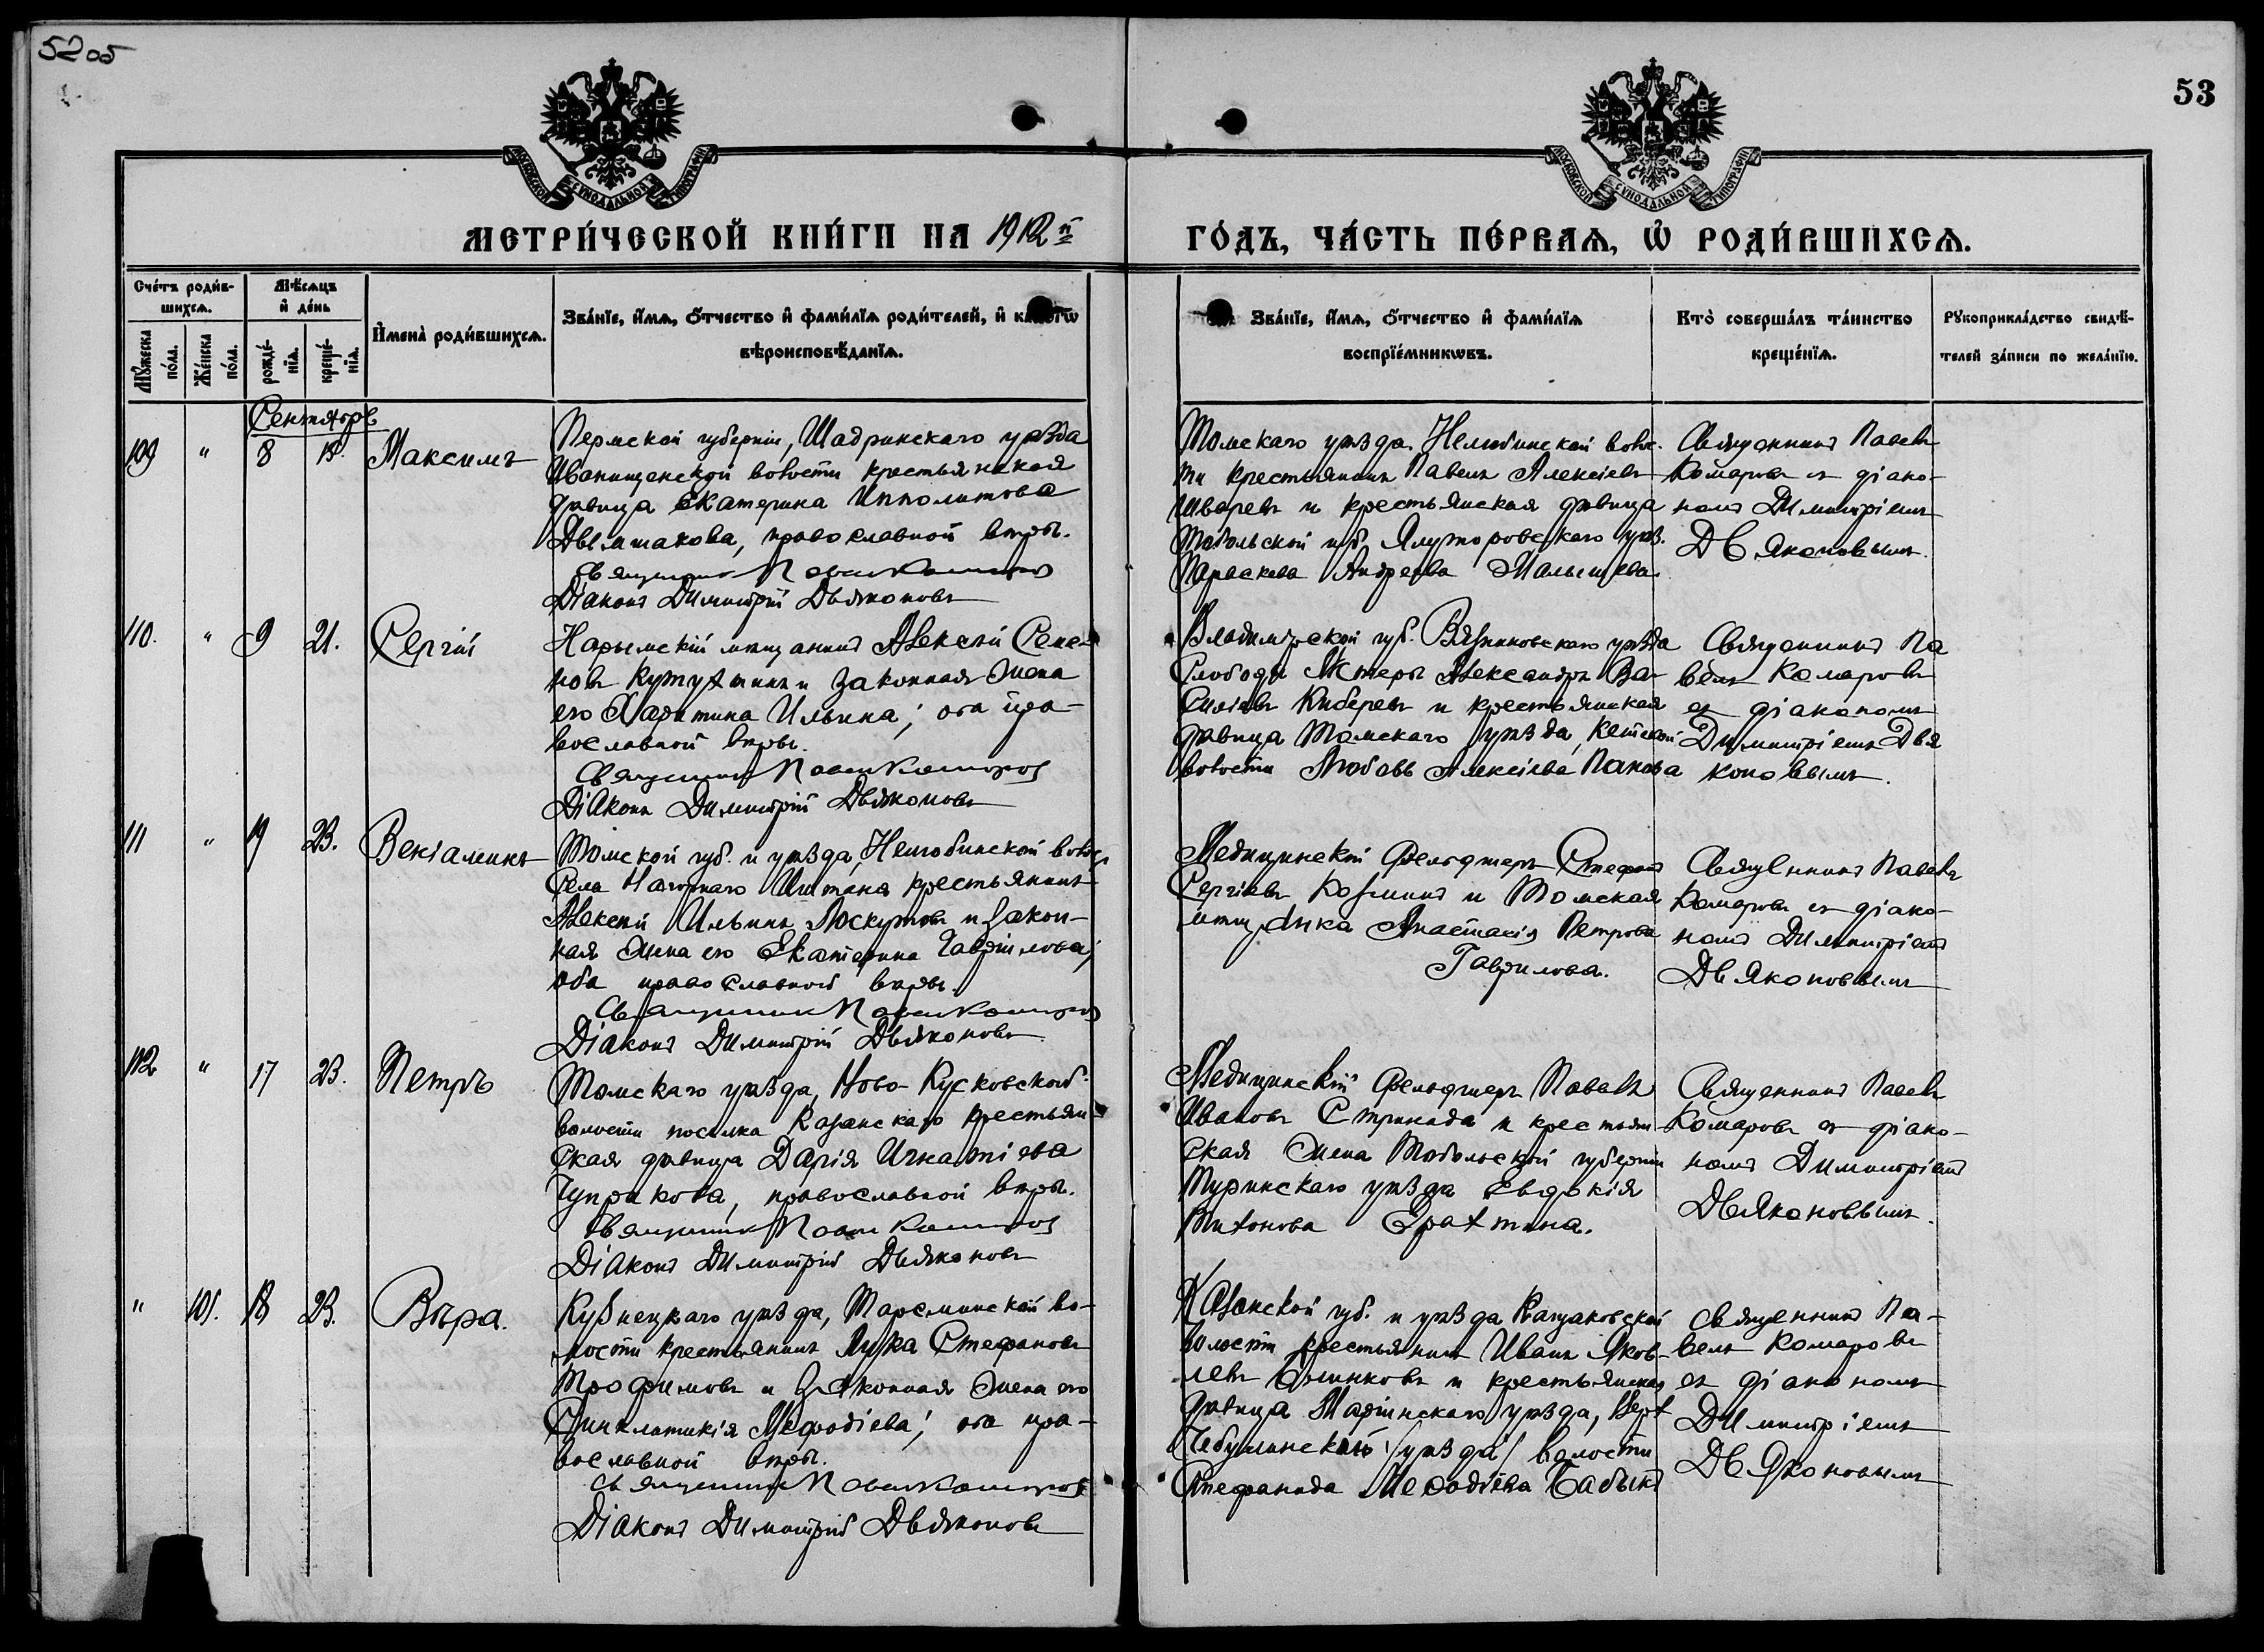 52об
53
МОСКОВСКОЙ СУНОДАЛЬНОЙ ТИПОГРАФІИ
МОСКОВСКОЙ СУНОДАЛЬНОЙ ТИПОГРАФІИ
МЕТРИ́ЧЕСКОЙ КНИ́ГИ НА 1912й
ГО́ДЪ, ЧА́СТЬ ПЕ́РВАѦ, Ѡ҆ РОДИ́ВШИХСѦ.
Сче́тъ роди́в-
шихсѧ.
Мѣ́сѧцъ
и҆ де́нь
Мꙋ́жеска
по́ла.
Же́нска
по́ла.
рожде́-
нїѧ.
креще́-
нїѧ.
И҆мена̀ роди́вшихсѧ.
Зва́нїе, и҆́мѧ, ѻ҆́тчество и҆ фами́лїѧ роди́телей, и҆
вѣроисповѣ́данїѧ.
Зва́нїе, и҆́мѧ, ѻ҆́тчество и҆ фами́лїѧ
воспрїе́мникѡвъ.
Кто̀ соверша́лъ та́инство
креще́нїѧ.
Рꙋкоприкла́дство свидѣ́-
телей за́писи по жела́нїю.
Сентябрь
109 " 8 18. Максимъ
Пермской губерніи, Шадринскаго уѣзда
Иванищевской волости крестьянская
дѣвица Екатерина Ипполитова
Двиматова, православной вѣры.
Священникъ Павелъ Комаровъ
Діаконъ Димитрій Дьяконовъ
Томскаго уѣзда Нелюбинской волос-
ти крестьянинъ Павелъ Алексіевъ
Шваревъ и крестьянская дѣвица
Тобольской губ. Ялуторовскаго уѣз.
Параскева Андреева Малышева
Священникъ Павелъ
Комаровъ съ діако-
номъ Димитріемъ
Дьяконовымъ.
110. " 9 21. Сергій
Нарымскій мѣщанинъ Алексѣй Семе-
новъ и законная жена
его Харитина Ильина; оба пра-
вославной вѣры.
Священникъ Павелъ Комаровъ
Діаконъ Димитрій Дьяконовъ
Владимірской губ. Вязниковскаго уѣзда
Слободы Мстеры Александръ Ва-
силіевъ Киберевъ и крестьянская
дѣвица Томскаго уѣзда, Кетской
волости Любовь Алексіева Панова
Священникъ Па
велъ Комаровъ
съ діакономъ
Димитріемъ Дья
коновымъ.
111 " 19 23. Веніаминъ
Томской губ. и уѣзда, Нелюбинской волос.
Села Нагорнаго Иштана крестьянинъ
Алексѣй Ильинъ Лоскутовъ и закон-
ная жена его Екатерина Гавріилова;
оба православной вѣры.
Священникъ Павелъ Комаровъ
Діаконъ Димитрій Дьяконовъ
Медицинскій фельдшеръ Стефанъ
Сергіевъ Козминъ и Томская
мѣщанка Анастасія Петрова
Гаврилова.
Священникъ Павелъ
Комаровъ съ діако-
номъ Димитріемъ
Дьяконовымъ
112 " 17 23. Петръ
Томскаго уѣзда, Ново-Кусковской
волости поселка Казанскаго крестьян-
ская дѣвица Дарія Игнатіева
Чуприкова, православной вѣры.
Священникъ Павелъ Комаровъ
Діаконъ Димитрій Дьяконовъ
Медицинскій фельдшеръ Павелъ
Ивановъ Стринада и крестьян-
ская жена Тобольской губерніи
Туринскаго уѣзда Евдокія
Тихонова
Священникъ Павелъ
Комаровъ съ діако-
номъ Димитріемъ
Дьяконовымъ.
" 101. 18 23. Вѣра.
Кузнецкаго уѣзда, Тарсминской во-
лости крестьянинъ Лука Стефановъ
Трофимовъ и законная жена его
Синклитикія Меѳодіева; оба пра-
вославной вѣры.
Священникъ Павелъ Комаровъ
Діаконъ Димитрій Дьяконовъ
Казанской губ. и уѣзда Кащаковской
волости крестьянинъ Иванъ Яков-
левъ и крестьянская
дѣвица Маріинскаго уѣзда, Верх
Чебулинской /уѣзда/ волости
Стефанида Меѳодіева
Священникъ Па-
велъ Комаровъ
съ діакономъ
Димитріемъ
Дьяконовымъ